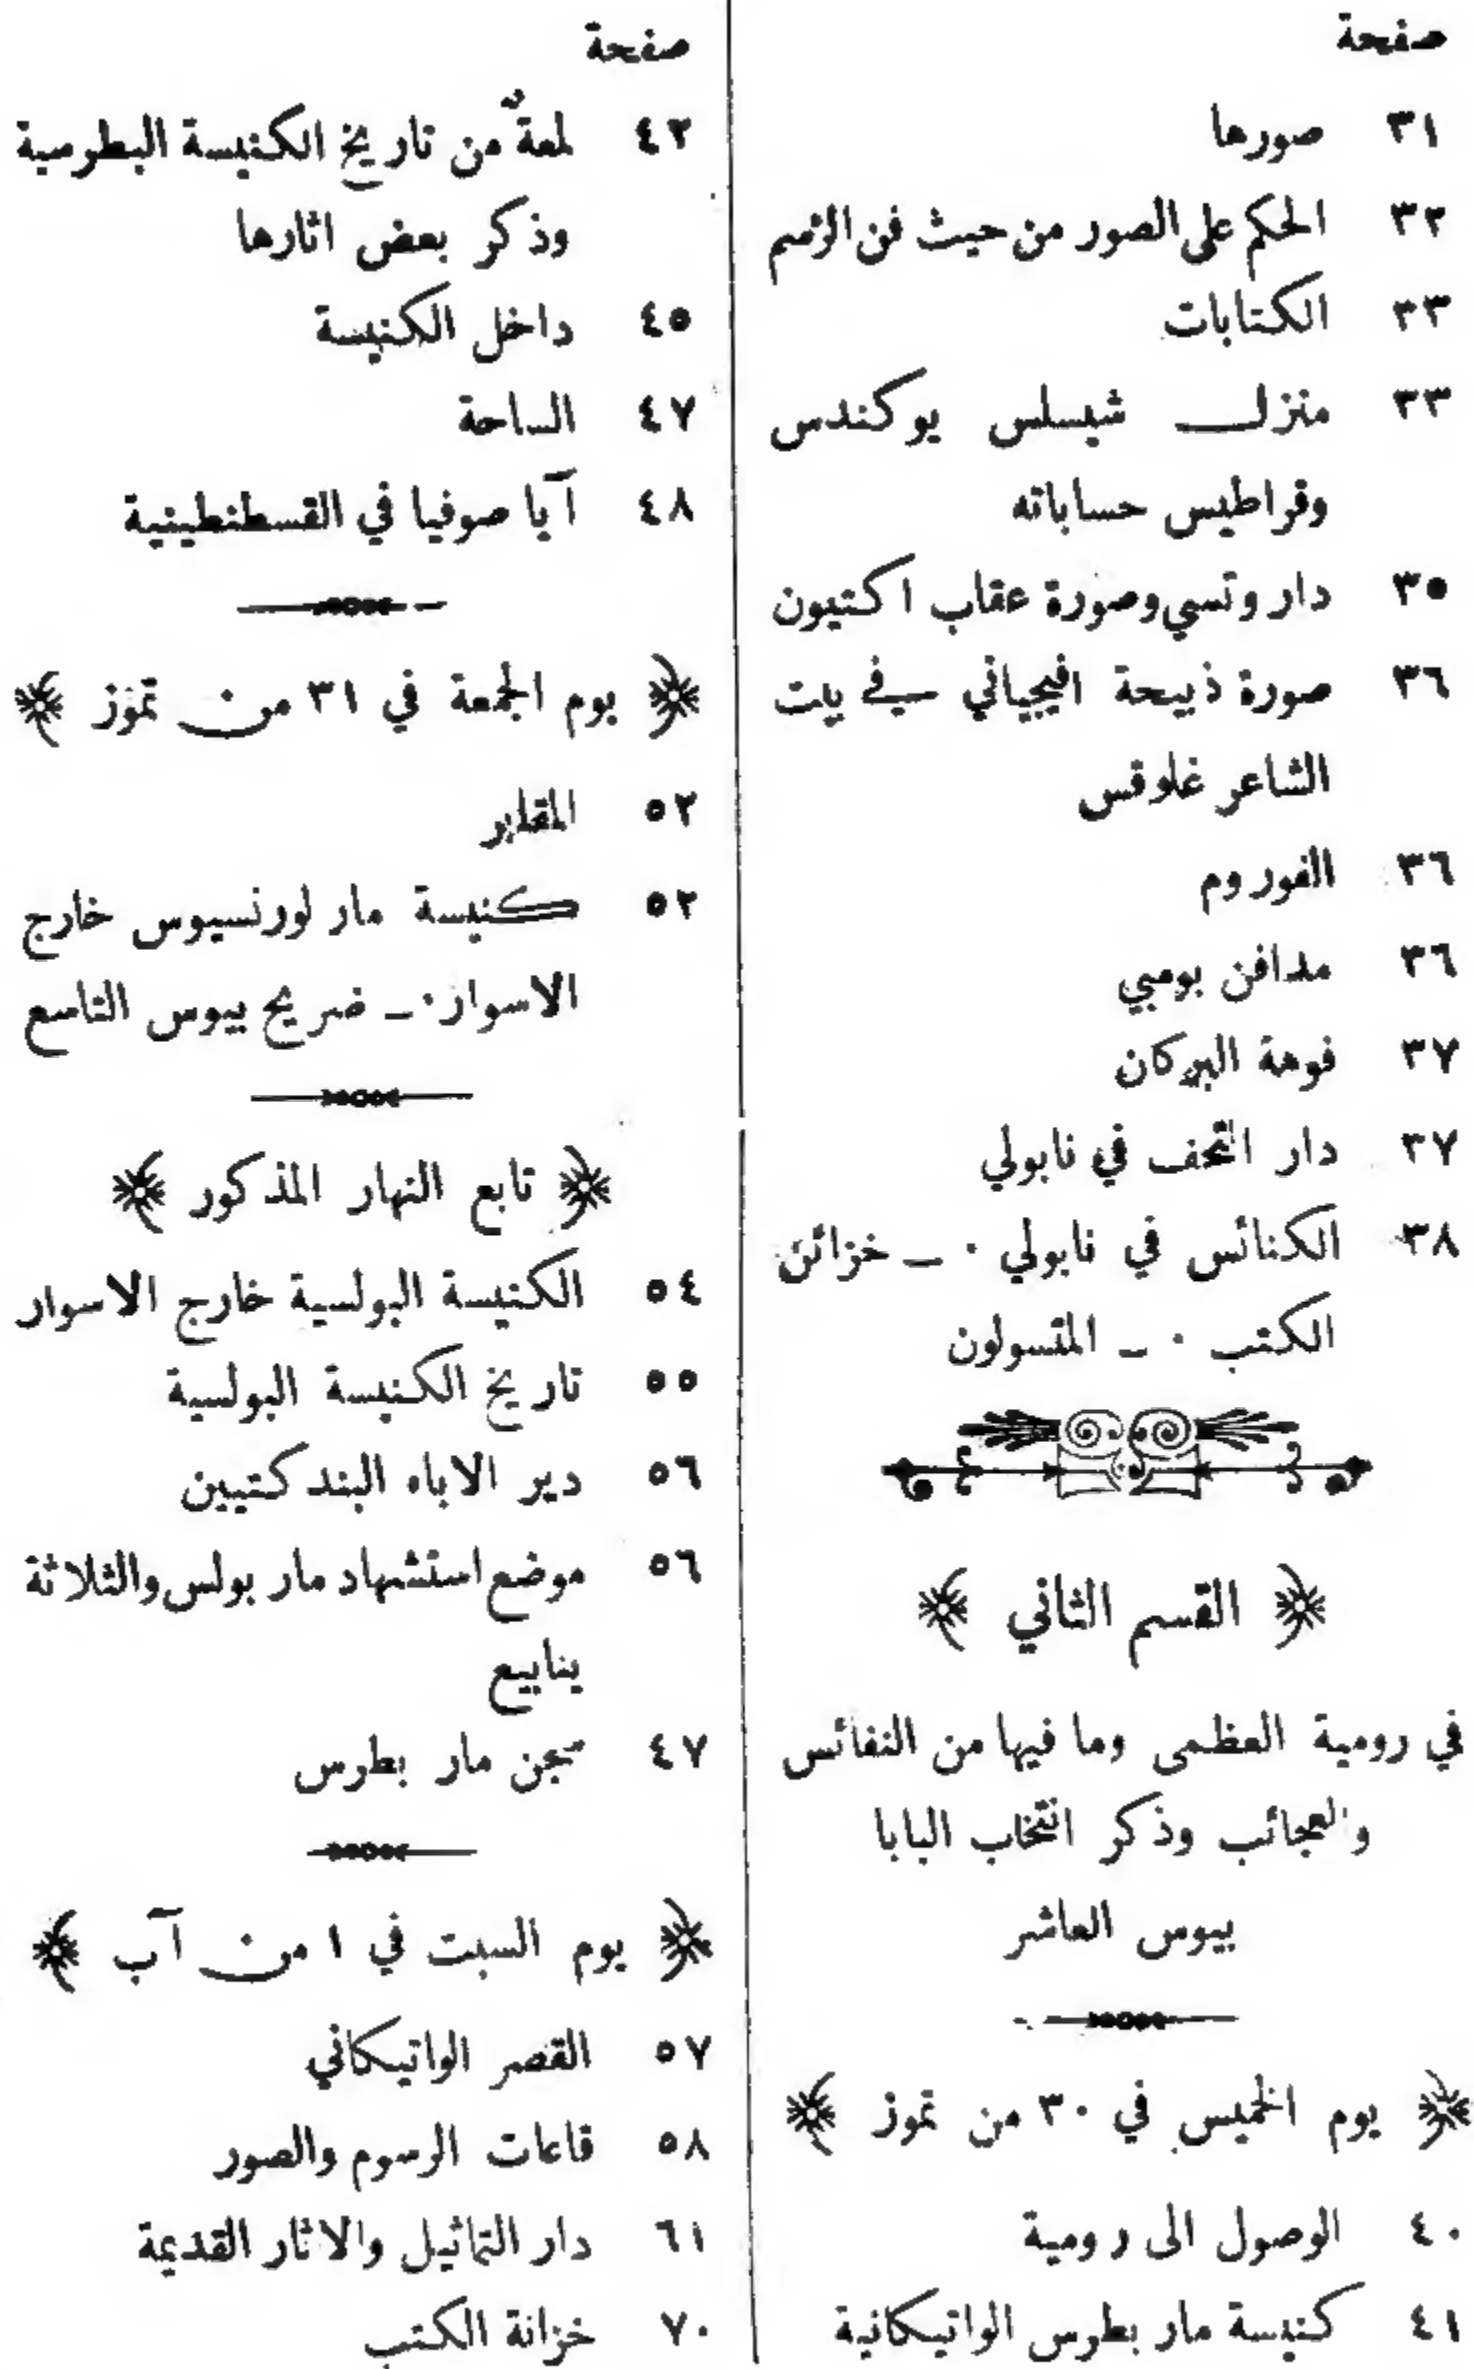 صفحة
٣١ صورها
٣٢ الحكم على الصور من حيث فن الرسم
٣٣ الكتابات
٣٣ منزل شيسلس يوكندس
وقراطيس حساباته
٣٥ دار وتسي وصورة عقاب اكتيون
٣٦ صورة ذبيحة افيجياني في بيت
الشاعر غلوقس
٣٦ الفوروم
٣٦ مدافن بومبي
٣٧ فوهة البركان
٣٧ دار التحف في نابولي
٣٨ الكنائس في نابولي . – خزائن
الكتب . – المتسولون
﴿ القسم الثاني ﴾
في رومية العظمى وما فيها من النفائس
والعجائب وذكر انتخاب البابا
بيوس العاشر
﴿ يوم الخميس في ٣٠ من تموز ﴾
٤٠ الوصول الى رومية
٤١ كنيسة مار بطرس الواتيكانية
صفحة
٤٢ لمعةٌ من تاريخ الكنيسة البطرسية
وذكر بعض اثارها
٤٥ داخل الكنيسة
٤٧ الساحة
٤٨ آيا صوفيا في القسطنطينية
﴿ يوم الجمعة في ٣١ من تموز ﴾
٥٢ المقابر
٥٢ كنيسة مار لورنسيوس خارج
الاسوار . – ضريح بيوس التاسع
﴿ تابع النهار المذكور ﴾
٥٤ الكنيسة البولسية خارج الاسوار
٥٥ تاريخ الكنيسة البولسية
٥٦ دير الاباء البندكتيين
٥٦ موضع استشهاد مار بولس والثلاثة
ينابيع
٤٧ سجن مار بطرس
﴿ يوم السبت في ١ من آب ﴾
٥٧ القصر الواتيكاني
٥٨ قاعات الرسوم والصور
٦١ دار التماثيل والاثار القديمة
٧٠ خزانة الكتب